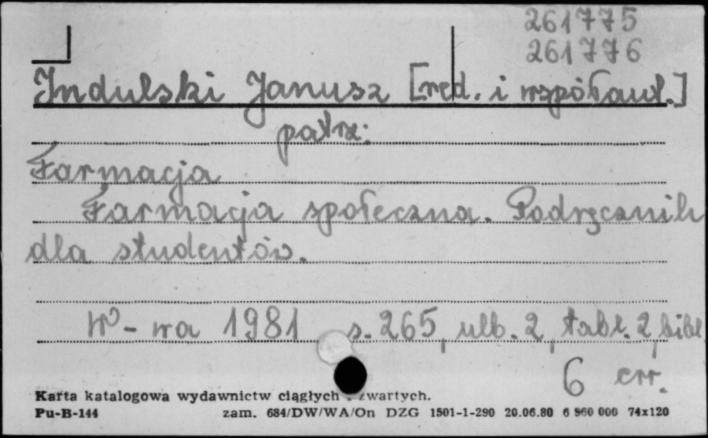 261775
261776
Indulski Janusz [red. i współaut.]
patrz:
Farmacja
Farmacja społeczna. Podręcznik
dla studentów.
W-wa 1981 s. 265, nlb. 2, tabl. 2, bibl
6 err.
Karta katalogowa wydawnictw ciągłych i zwartych.
Pu-B-144 zam. 684/DW/WA/On DZG 1501-1-290 20.06.80 6 960 000 74x120